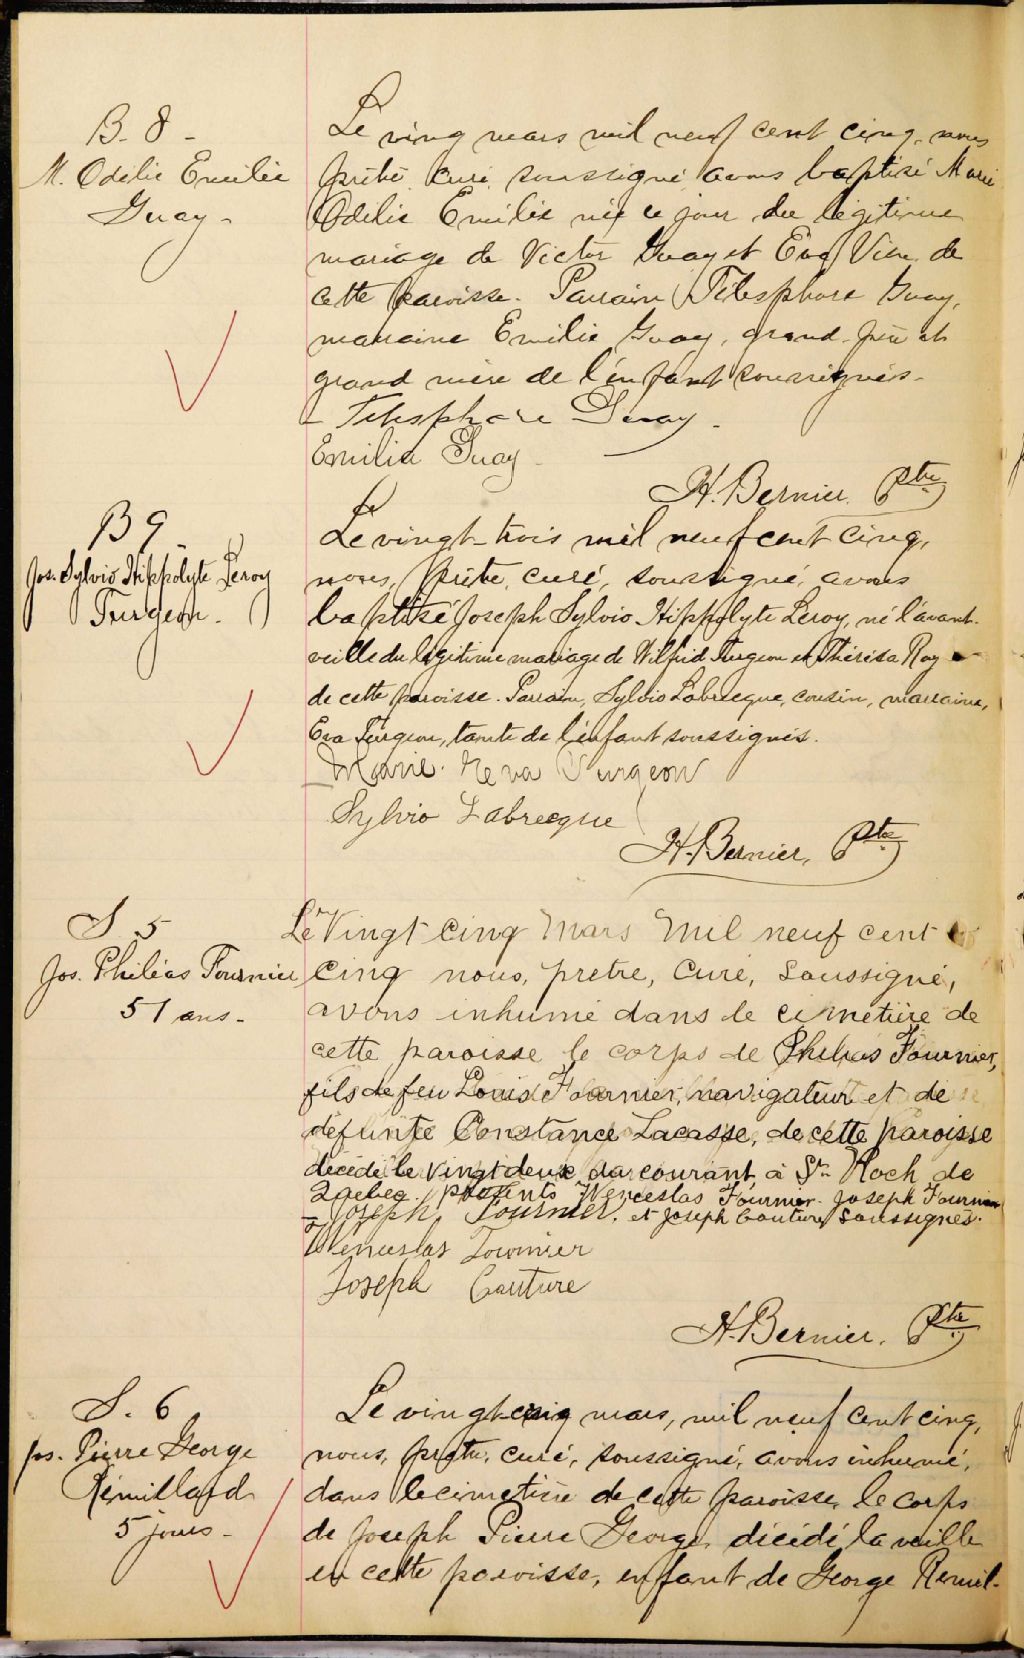 B. 8 -
M. Odélie Emilie
Guay -
Le ving mars mil neuf cent cinq, nous
prêtre curé soussigné avons baptisé Marie
Odelie Emilie née ce jour du légitime
mariage de Victor Guay et Eva Vien de
cette paroisse. Parrain Télesphore Guay,
marraine Emilie Guay, grand-père et
grand mère de l'enfant soussignés -
- Telesphore Guay -
Emilia Guay -
H. Bernier. Ptre
B 9 -
Jos. Sylvio Hippolyte Leroy
Turgeon.
Le vingt-trois mil neuf cent cinq,
nous, prêtre, curé, soussigné, avons
baptisé Joseph Sylvio Hippolyte Leroy, né l'avant-
veille du légitime mariage de Wilfrid Turgeon et Thérèsa Roy
de cette paroisse. Parrain, Sylvio Labrecque, cousin, marraine,
Eva Turgeon, tante de l'enfant soussignés.
Marie Turgeon
Sylvio Labrecque
H. Bernier, Ptre
S 5
Jos. Philéas Fournier
51 ans -
Le Vingt cinq Mars Mil neuf cent
cinq nous, prêtre, Curé, Soussigné,
avons inhumé dans le cimetière de
cette paroisse le corps de Phileas Fournier,
fils de feu Louis Fournier, navigateur et de
défunte Constance Lacasse, de cette paroisse
décédé le vingt deux du courant à St Roch de
Québec. présents Wenceslas Fournier. Joseph Fournier
et Joseph Couture Soussignés.
- Joseph Fournier.
Wenceslas Fournier
Joseph Couture
H. Bernier. Ptre
S. 6
Jos. Pierre George
Rémillard
5 jours -
Le vingt-cinq mars, mil neuf cent cinq,
nous, prêtre, curé, soussigné, avons inhumé,
dans le cimetière de cette paroisse, le corps
de Joseph Pierre George, décédé la veille
en cette paroisse, enfant de George Remil-